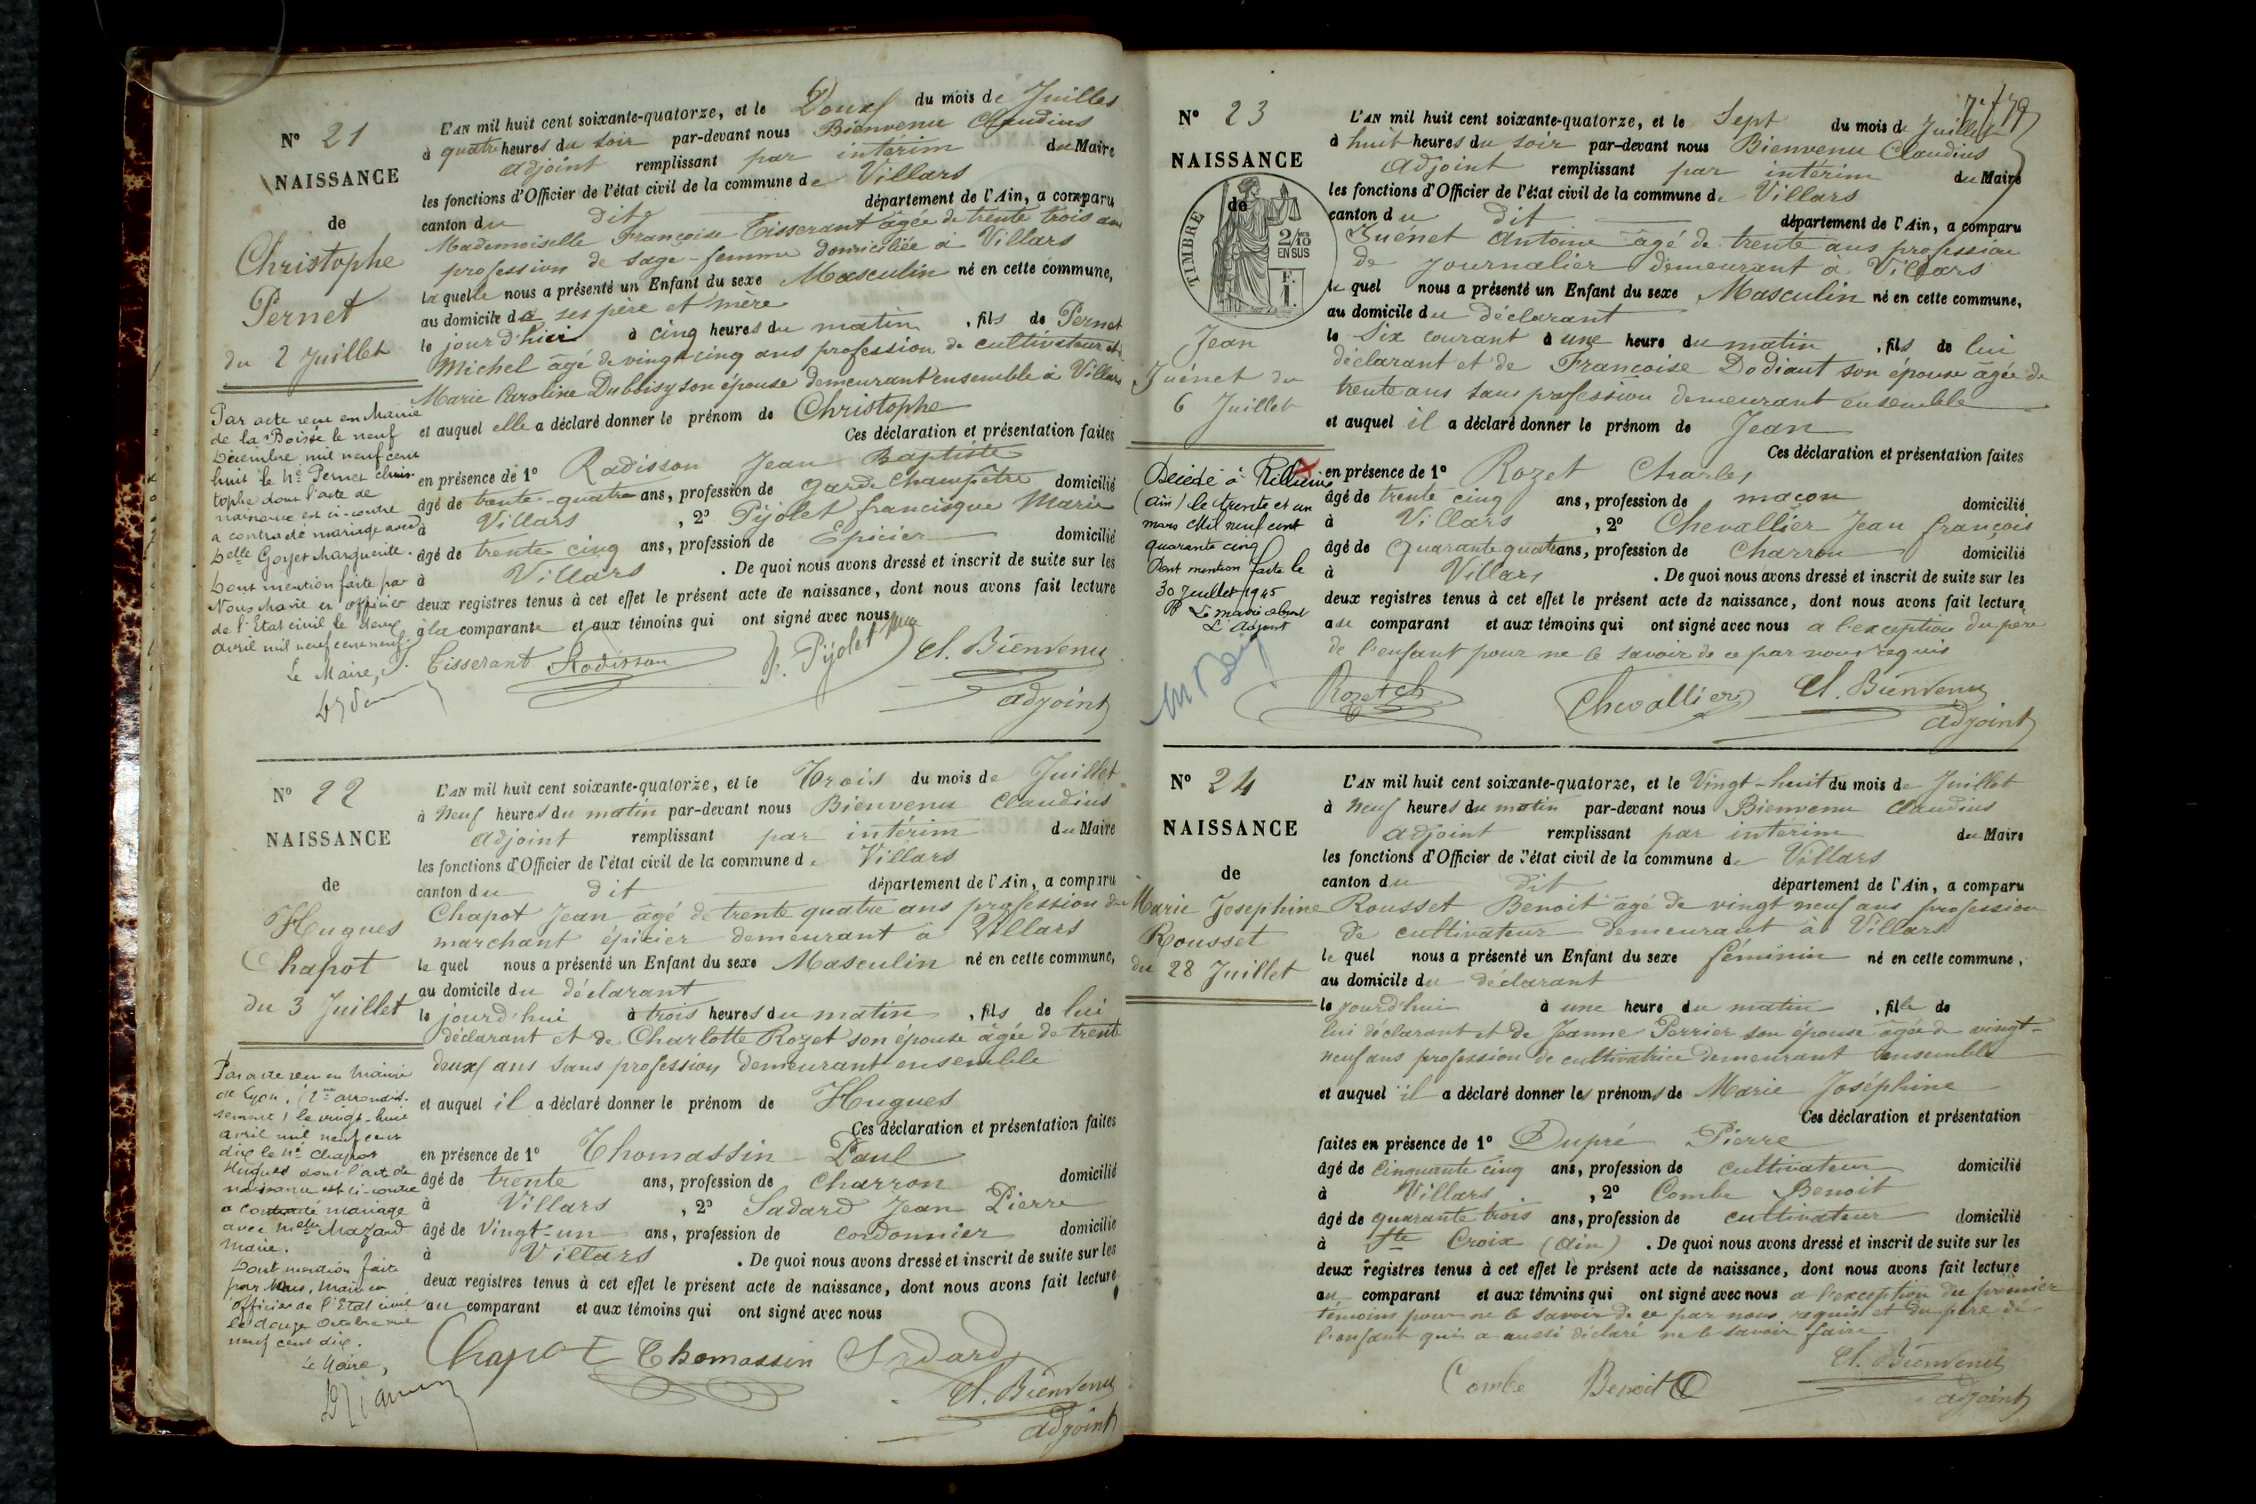 N° 21
NAISSANCE
de
Christophe
Pernet
du 2 Juillet
L'AN mil huit cent soixante-quatorze, et le Deux du mois de Juillet
à quatre heures du soir par-devant nous Bienvenu Claudius
adjoint remplissant par interim du Maire
les fonctions d'Officier de l'état civil de la commune de Villars
canton du dit département de l'Ain, a comparu
Mademoiselle Françoise Tisserant âgée de trente trois ans
profession de sage-femme domiciliée à Villars
laquelle nous a présenté un Enfant du sexe Masculin né en cette commune,
au domicile de ses père et mère
le jour d'hier à cinq heures du matin, fils de Pernet
Michel âgé de vingt cinq ans profession de cultivateur et
Marie Caroline Dubloisy son épouse demeurant ensemble à Villars
et auquel elle a déclaré donner le prénom de Christophe
Ces déclaration et présentation faites
en présence de 1° Radisson Jean Baptiste
âgé de trente-quatre ans, profession de garde champêtre domicilié
à Villars, 2° Pijolet francisque Marie
âgé de trente cinq ans, profession de Epicier domicilié
à Villars. De quoi nous avons dressé et inscrit de suite sur les
deux registres tenus à cet effet le présent acte de naissance, dont nous avons fait lecture
à la comparante et aux témoins qui ont signé avec nous
Tisserant Radisson Pijolet Cl. Bienvenu
adjoint
Par acte reçu en Mairie
de la Boisse le neuf
Décembre mil neuf cent
huit le né Pernet Chris-
tophe dont l'acte de
naissance est ci-contre
a contracté mariage avec
Delle Goyet Marguerite.
Dont mention faite par
Nous Maire en officier
de l'Etat civil le deux
avril mil neuf cent neuf.
Le Maire,
N° 22
NAISSANCE
de
Hugues
Chapot
du 3 Juillet
L'AN mil huit cent soixante-quatorze, et le Trois du mois de Juillet
à neuf heures du matin par-devant nous Bienvenu Claudius
adjoint remplissant par intérim du Maire
les fonctions d'Officier de l'état civil de la commune de Villars
canton du dit département de l'Ain, a comparu
Chapot Jean âgé de trente quatre ans profession de
marchant épicier demeurant à Villars
lequel nous a présenté un Enfant du sexe Masculin né en cette commune,
au domicile du déclarant
le jourd'hui à trois heures du matin, fils de lui
déclarant et de Charlotte Rozet son épouse âgée de trente
deux ans sans profession demeurant ensemble
et auquel il a déclaré donner le prénom de Hugues
Ces déclaration et présentation faites
en présence de 1° Thomassin Paul
âgé de trente ans, profession de charron domicilié
à Villars, 2° Sadard Jean Pierre
âgé de Vingt-un ans, profession de cordonnier domicilié
à Villars. De quoi nous avons dressé et inscrit de suite sur les
deux registres tenus à cet effet le présent acte de naissance, dont nous avons fait lecture
au comparant et aux témoins qui ont signé avec nous
Chapot Thomassin Sadard
Cl. Bienvenu
adjoint
Par acte reçu en Mairie
de Lyon, (2me arrondis-
sement) le vingt-huit
avril mil neuf cent
dix le né Chapot
Hugues dont l'acte de
naissance est ci-contre
a contracté mariage
avec Melle Mazard
Marie.
Dont mention faite
par Nous, Maire en
officier de l'Etat civil
le douze Octobre mil
neuf cent dix.
Le Maire,
N° 23
NAISSANCE
de
TIMBRE
2/10
EN SUS
Jean
Juénet du
6 Juillet
L'AN mil huit cent soixante-quatorze, et le Sept du mois de Juillet
à huit heures du soir par-devant nous Bienvenu Claudius
adjoint remplissant par intérim du Maire
les fonctions d'Officier de l'état civil de la commune de Villars
canton du dit département de l'Ain, a comparu
Juénet Antoine âgé de trente ans profession
de journalier demeurant à Villars
lequel nous a présenté un Enfant du sexe Masculin né en cette commune,
au domicile du déclarant
le Six courant à une heure du matin, fils de lui
déclarant et de Françoise Dodiaut son épouse âgée de
trente ans sans profession demeurant ensemble
et auquel il a déclaré donner le prénom de Jean
Ces déclaration et présentation faites
en présence de 1° Rozet Charles
âgé de trente cinq ans, profession de maçon domicilié
à Villars, 2° Chevallier Jean françois
âgé de Quarante quatre ans, profession de charron domicilié
à Villars. De quoi nous avons dressé et inscrit de suite sur les
deux registres tenus à cet effet le présent acte de naissance, dont nous avons fait lecture
au comparant et aux témoins qui ont signé avec nous a l'exception du père
de l'enfant pour ne le savoir de ce par nous requis
Rozet Ch Chevallier Cl. Bienvenu
adjoint
Décédé à
(ain) le trente et un
mars Mil neuf cent
quarante cinq
Dont mention faite le
30 Juillet 1945
L'Adjoint
N° 24
NAISSANCE
de
Marie Josephine
Rousset
du 28 Juillet
L'AN mil huit cent soixante-quatorze, et le Vingt-huit du mois de Juillet
à neuf heures du matin par-devant nous Bienvenu Claudius
adjoint remplissant par intérim du Maire
les fonctions d'Officier de l'état civil de la commune de Villars
canton du dit département de l'Ain, a comparu
Rousset Benoit âgé de vingt neuf ans profession
de cultivateur demeurant à Villars
lequel nous a présenté un Enfant du sexe féminin né en cette commune,
au domicile du déclarant
le jourd'hui à une heure du matin, fille de
lui déclarant et de Jeanne Perrier son épouse âgée de vingt-
neuf ans profession de cultivatrice demeurant ensemble
et auquel il a déclaré donner les prénoms de Marie Joséphine
Ces déclaration et présentation
faites en présence de 1° Dupré Pierre
âgé de cinquante cinq ans, profession de cultivateur domicilié
à Villars, 2° Combe Benoit
âgé de quarante trois ans, profession de cultivateur domicilié
à Ste Croix (ain). De quoi nous avons dressé et inscrit de suite sur les
deux registres tenus à cet effet le présent acte de naissance, dont nous avons fait lecture
au comparant et aux témoins qui ont signé avec nous a l'exception du premier
témoins pour ne le savoir de ce par nous requis et du père de
l'enfant qui a aussi déclaré ne le savoir faire
Combe Benoit Cl. Bienvenu
adjoint